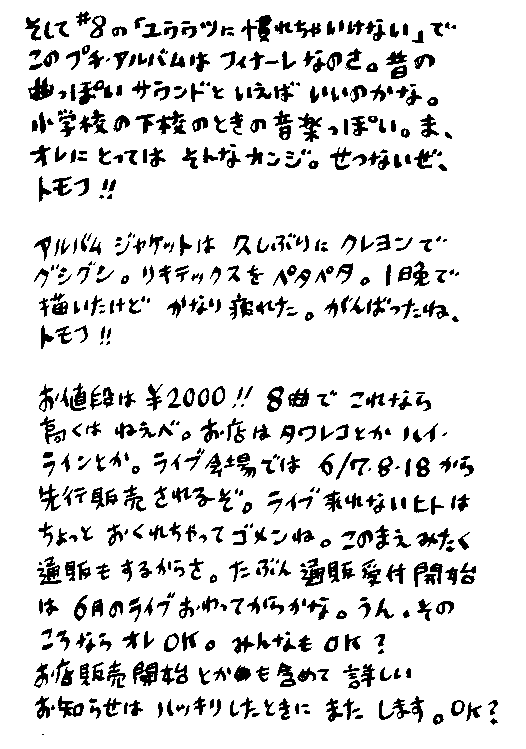 そして#8の「ユウウツに慣れちゃいけない」で
このプチ・アルバムは フィナーレなのさ。昔の
曲っぽい サウンドと いえば いいのかな。
小学校の下校のときの音楽っぽい。ま、
オレにとっては そんなカンジ。せつないぜ、
トモフ!!
アルバム ジャケットは 久しぶりに クレヨンで
グシグシ。リキテックスを ペタペタ。1日晩で
描いたけど かなり疲れた。がんばったね、
トモフ!!
お値段は ¥2000!! 8曲で これなら
高くは ねえべ。お店は タワレコとか ハイ・
ラインとか。ライブ会場では 6/7・8・18から
先行販売 されるぞ。ライブ来れないヒトは
ちょっと おくれちゃって ゴメンね。このまえ みたく
通販も するからさ。たぶん 通販受付開始
は 6月のライブおわってからかな。うん。その
ころなら オレOK。みんなも OK?
お店販売開始とかも含めて 詳しい
お知らせは ハッキリしたときに また します。OK?